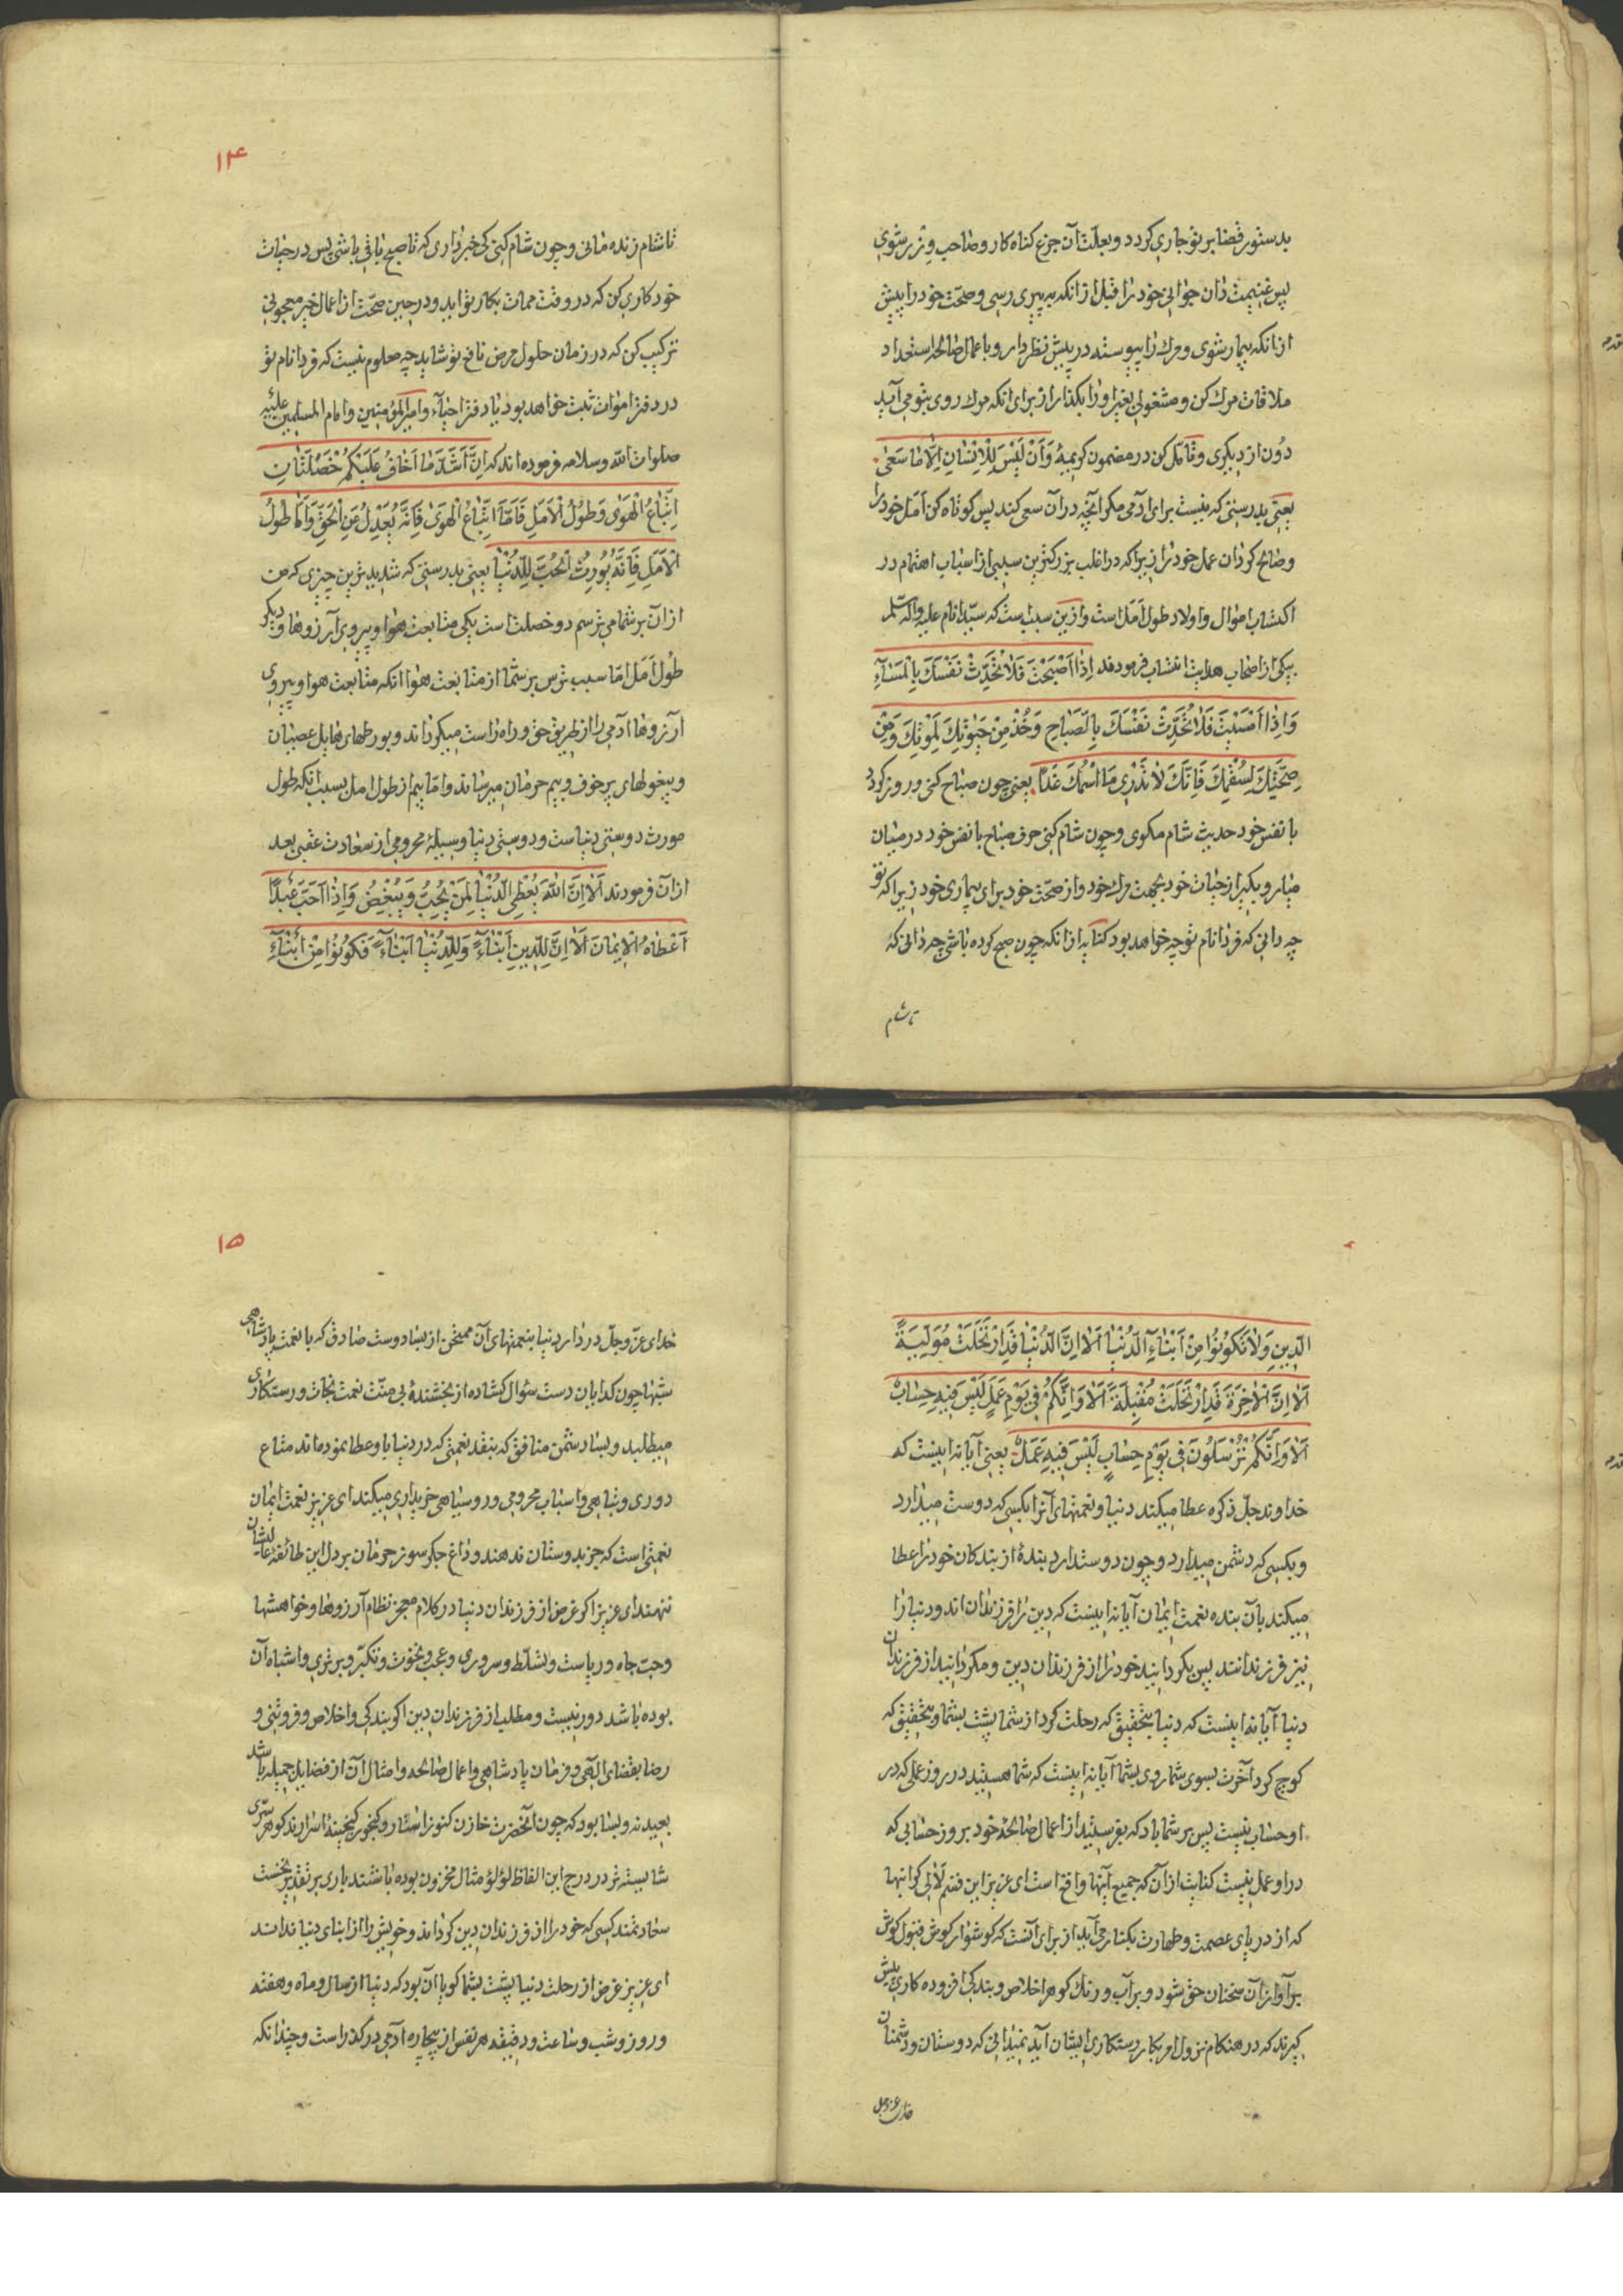 بدستور قضا بر تو جاری کردد و بعلّت آن جزع کناه کار و صاحب وِزر شوی
پس غنیمت دان جوانی خود را قبل از انکه به پیری رسی و صحّت خود را پیش
از انکه بیمار شوی و مرك را پیوسته در پیش نظر دار و با عمال صالحه استعداد
ملاقات مرك کن و مشغولی بغیر او را بکذار از برای انکه مرك روی بتو می آید
دُون از دیکری و تامّل کن در مضمون کریمهٔ وَاَنْ لَیْسَ لِلْاِنْسٰانِ اِلّٰا مٰا سَعٰی
یعنی بدرستی که نیست برای آدمی مکر آنچه در آن سعی کند پس کوتاه کن اَمَل خود را
و صالح کردان عمل خود را زیرا که در اغلب بزرکترین سببی از اسباب اهتمام در
اکتساب اموال و اولاد طول اَمَل است و ازین سبب است که سیّد انام علیه و اله السّلم
بیکی از اصحاب هدایت انتساب فرمودند اِذٰا اَصْبَحْتَ فَلٰا تُحَدِّثْ نَفْسَكَ بِالْمَسٰآءِ
وَ اِذٰا اَمْسَیْتَ فَلٰا تُحَدِّثْ نَفْسَكَ بِالصَّبٰاحِ وَ خُذْ مِنْ حَیٰوتِكَ لِمَوْتِكَ وَ مِنْ
صِحَّتِكَ لِسُقْمِكَ فَاِنَّكَ لٰا تَدْرِی مَا اسْمُكَ غَدًا یعنی چون صباح کنی و روز کردد
با نفس خود حدیث شام مکوی و چون شام کنی حرف صباح با نفس خود در میان
میار و بکیر از حیات خود بجهت مرك خود و از صحّت خود برای بیماری خود زیرا که تو
چه دانی که فردا نام تو چه خواهد بود کنایه از انکه چون صبح کرده باشی چه دانی که
تا شام
۱۴
تا شام زنده مانی و چون شام کنی کی خبر داری که تا صبح باقی باشی پس در حیات
خود کاری کن که در وقت ممات بکار تو اید و در حین صحّت از اعمال خیر معجونی
ترکیب کن که در زمان حلول مرض نافع تو شاید چه معلوم نیست که فردا نام تو
در دفتر اموات ثبت خواهد بود یا در دفتر احیآء و امیر المؤمنین و امام المسلمین علیه
صلوات اللّه و سلامه فرموده اند که اِنَّ اَشَدَّ مٰا اَخٰافُ عَلَیْکُمْ خَصْلَتٰانِ
اِتِّبٰاعُ الْهَوٰی وَ طُولُ الْاَمَلِ فَاَمَّا اتِّبٰاعُ الْهَوٰی فَاِنَّهُ یُعْدِلُ عَنِ الْحَقِّ وَ اَمّٰا طُولُ
الْاَمَلِ فَاِنَّهُ یُورِثُ الْحُبَّ لِلدُّنْیٰا یعنی بدرستی که شدیدترین چیزی که من
از آن بر شما می ترسم دو خصلت است یکی متابعت هوا و پیروی آرزوها و دیکر
طُول اَمَل امّا سبب ترس بر شما از متابعت هوا انکه متابعت هوا و پیروی
آرزوها آدمی را از طریق حق و راه راست میکرداند و بورطهای هایل عصیان
و بیغولهای پر خوف و بیم حرمان میرساند و امّا بیم از طول امل بسبب انکه طول
مورث دوستی دنیاست و دوستی دنیا وسیلهٔ محرومی از سعادت عقبی بعد
از آن فرمودند اَلٰا اِنَّ اللّٰهَ یُعْطِی الدُّنْیٰا لِمَنْ یُحِبُّ وَ یُبْغِضُ وَ اِذٰا اَحَبَّ عَبْدًا
اَعْطٰاهُ الْاِیمٰانَ اَلٰا اِنَّ لِلدِّینِ اَبْنٰآءً وَ لِلدُّنْیٰا اَبْنٰآءً فَکُونُوا مِنْ اَبْنٰآءِ
الدِّینِ وَلٰا تَکُونُوا مِنْ اَبْنٰآءِ الدُّنْیٰا اَلٰا اِنَّ الدُّنْیٰا قَدِ ارْتَحَلَتْ مُوَلِّیَةً
اَلٰا اِنَّ الْاٰخِرَةَ قَدِ ارْتَحَلَتْ مُقْبِلَةً اَلٰا وَ اِنَّکُمْ فِی یَوْمِ عَمَلٍ لَیْسَ فِیهِ حِسٰابٌ
اَلٰا وَ اِنَّکُمْ تُرْسَلُونَ فِی یَوْمِ حِسٰابٍ لَیْسَ فِیهِ عَمَلٌ یعنی آیا نه اینست که
خداوند جلّ ذکره عطا میکند دنیا و نعمتهای آنرا بکسی که دوست میدارد
و بکسی که دشمن میدارد و چون دوست دارد بندهٔ از بندکان خود را عطا
میکند بآن بنده نعمت ایمان آیا نه اینست که دین را فرزندان اند و دنیا را
نیز فرزندانند پس بکردانید خود را از فرزندان دین و مکردانید از فرزندان
دنیا آیا نه اینست که دنیا بتحقیق که رحلت کرد از شما پشت بشما و بتحقیق که
کوچ کرد آخرت بسوی شما روی بشما آیا نه اینست که شما هستید در روز عملی که در
او حساب نیست پس بر شما باد که بفرستید از اعمال صالحهٔ خود بروز حسابی که
در او عمل نیست کنایت از آن که جمیع آینها واقع است ای عزیز این قسم لآلی کرانبها
که از دریای عصمت و طهارت بکنار می آید از برای آنست که کوشوار کوش قبول کوش
بر آواز آن سخنان حق شود و بر آب و رنك کوهر اخلاص و بندکی افزوده کاری پیش
کیرند که در هنکام نزول امر بکار رستکاری ایشان آید نمیدانی که دوستان و دشمنان
خدای عزّ وجل
۱۵
خدای عزّ وجلّ در دار دنیا بنعمتهای آن ممتحن از بسا دوست صادق که با نعمت پادشاهی
شبها چون کدایان دست سئوال کشاده از بخشندهٔ بی منّت نعمت نجات و رستکاری
میطلبد و بسا دشمن منافق که بنقد نعمتی که در دنیا باو عطا نموده اند متاع
دوری و تباهی و اسباب محرومی و روسیاهی خریداری میکند ای عزیز نعمت ایمان
نعمتی است که جز بدوستان ندهند و داغ جکر سوز حرمان بر دل این طائفهٔ عالیشان
ننهند ای عزیز اکر غرض از فرزندان دنیا در کلام معجز نظام آرزوها و خواهشها
و حبّ جاه و ریاست و تسلّط و سروری و عجب و نخوت و تکبّر و برتری و اشباه آن
بوده باشد دور نیست و مطلب از فرزندان دین اکر بندکی و اخلاص و فروتنی و
رضا بقضای الهی و فرمان پادشاهی و اعمال صالحه و امثال آن از فضایل جمیله باشد
بعید نه و بسا بود که چون آنحضرت خازن کنوز استار و کنجور کنجینهٔ اسرارند کوهر سرّی
شایسته تر در درج این الفاظ لؤلؤ مثال مخزون بوده باشند باری بر تقدیر نخست
سعادتمند کسی که خود را از فرزندان دین کرداند و خویش را از ابنای دنیا نداند
ای عزیز غرض از رحلت دنیا پشت بشما کویا آن بود که دنیا از سال و ماه و هفته
و روز و شب و ساعت و دقیقه هر نفس از بیچاره آدمی در کذر است و چندانکه